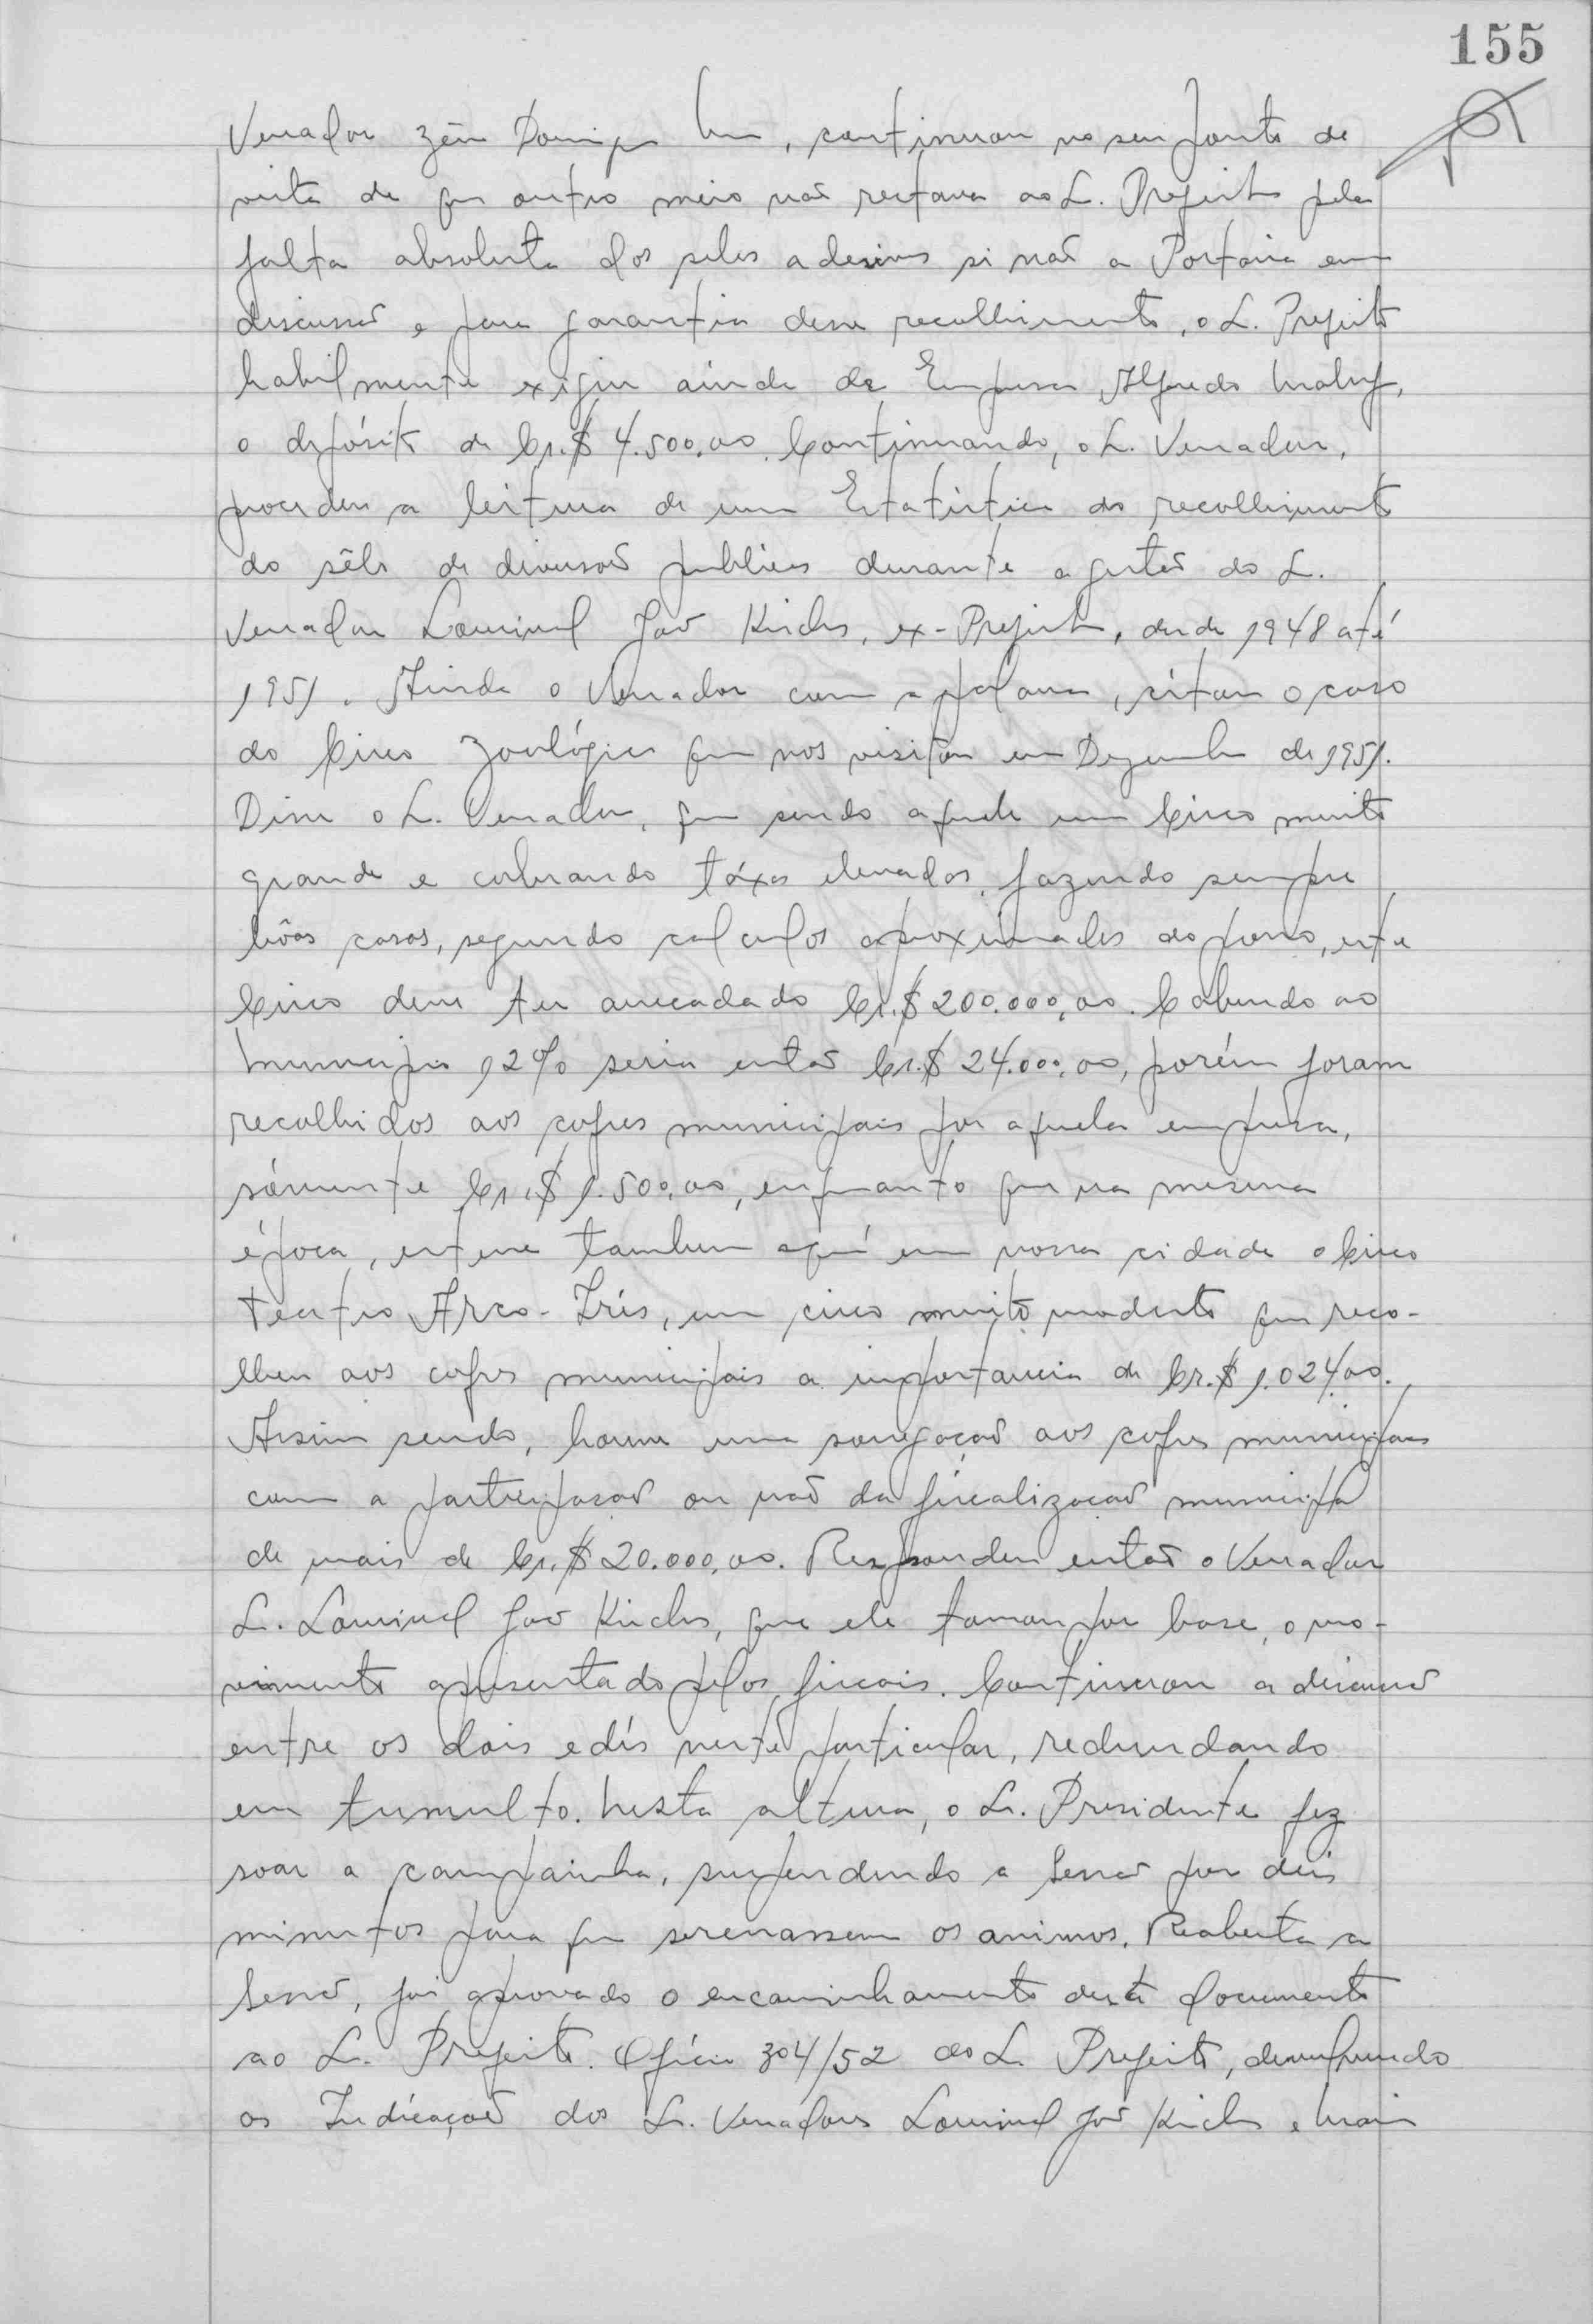 155
Vereador Zéu Domingos, continuou no seu ponto de
vista de que outro meio não restava ao S. Prefeito pela
falta absoluta dos selos adesivos si não a Portaria em
discussão e para garantia desse recolhimento, o S. Prefeito
habilmente exigiu ainda da Empresa Alfredo
o depósito de Cr.$ 4.500,00. Continuando, o S. Vereador,
procedeu a leitura de uma Estatistica do recolhimento
do sêlo de diversões publicas durante a gestão do S.
Vereador Lourival João Kirchs, ex-Prefeito, desde 1948 até
1951. Ainda o Vereador com a palavra, citou o caso
do Circo Zoológico que nos visitou em Dezembro de 1951.
Disse o S. Vereador, que sendo aquele um Circo muito
grande e cobrando táxas elevadas, fazendo sempre
bôas casas, segundo calculos aproximados do povo, este
Circo deve ter arrecadado Cr.$ 200.000,00. Cabendo ao
Municipio 12% seria então Cr.$ 24.000,00, porém foram
recolhidos aos cofres municipais por aquela empresa,
sómente Cr.$ 1.500,00, enquanto que na mesma
época, esteve tambem aquí em nossa cidade o Circo
Teatro Arco-Iris, um circo muito modesto que reco-
lheu aos cofres municipais a importancia de Cr.$ 1.024,00.
Assim sendo, houve uma sonegação aos cofres municipais
com a participação ou não da fiscalização municipal
de mais de Cr.$ 20.000,00. Respondeu então o Vereador
S. Lourival João Kirchs, que ele tomou por base, o mo-
vimento apresentado pelos fiscais. Continuou a discussão
entre os dois edís neste particular, redundando
em tumulto. Nesta altura, o S. Presidente fez
soar a campainha, suspendendo a Sessão por dois
minutos para que serenassem os animos. Reaberta a
Sessão, foi aprovado o encaminhamento deste documento
ao S. Prefeito. Oficio 304/52 do S. Prefeito, devolvendo
as Indicações dos S. Vereadores Lourival João Kirchs e